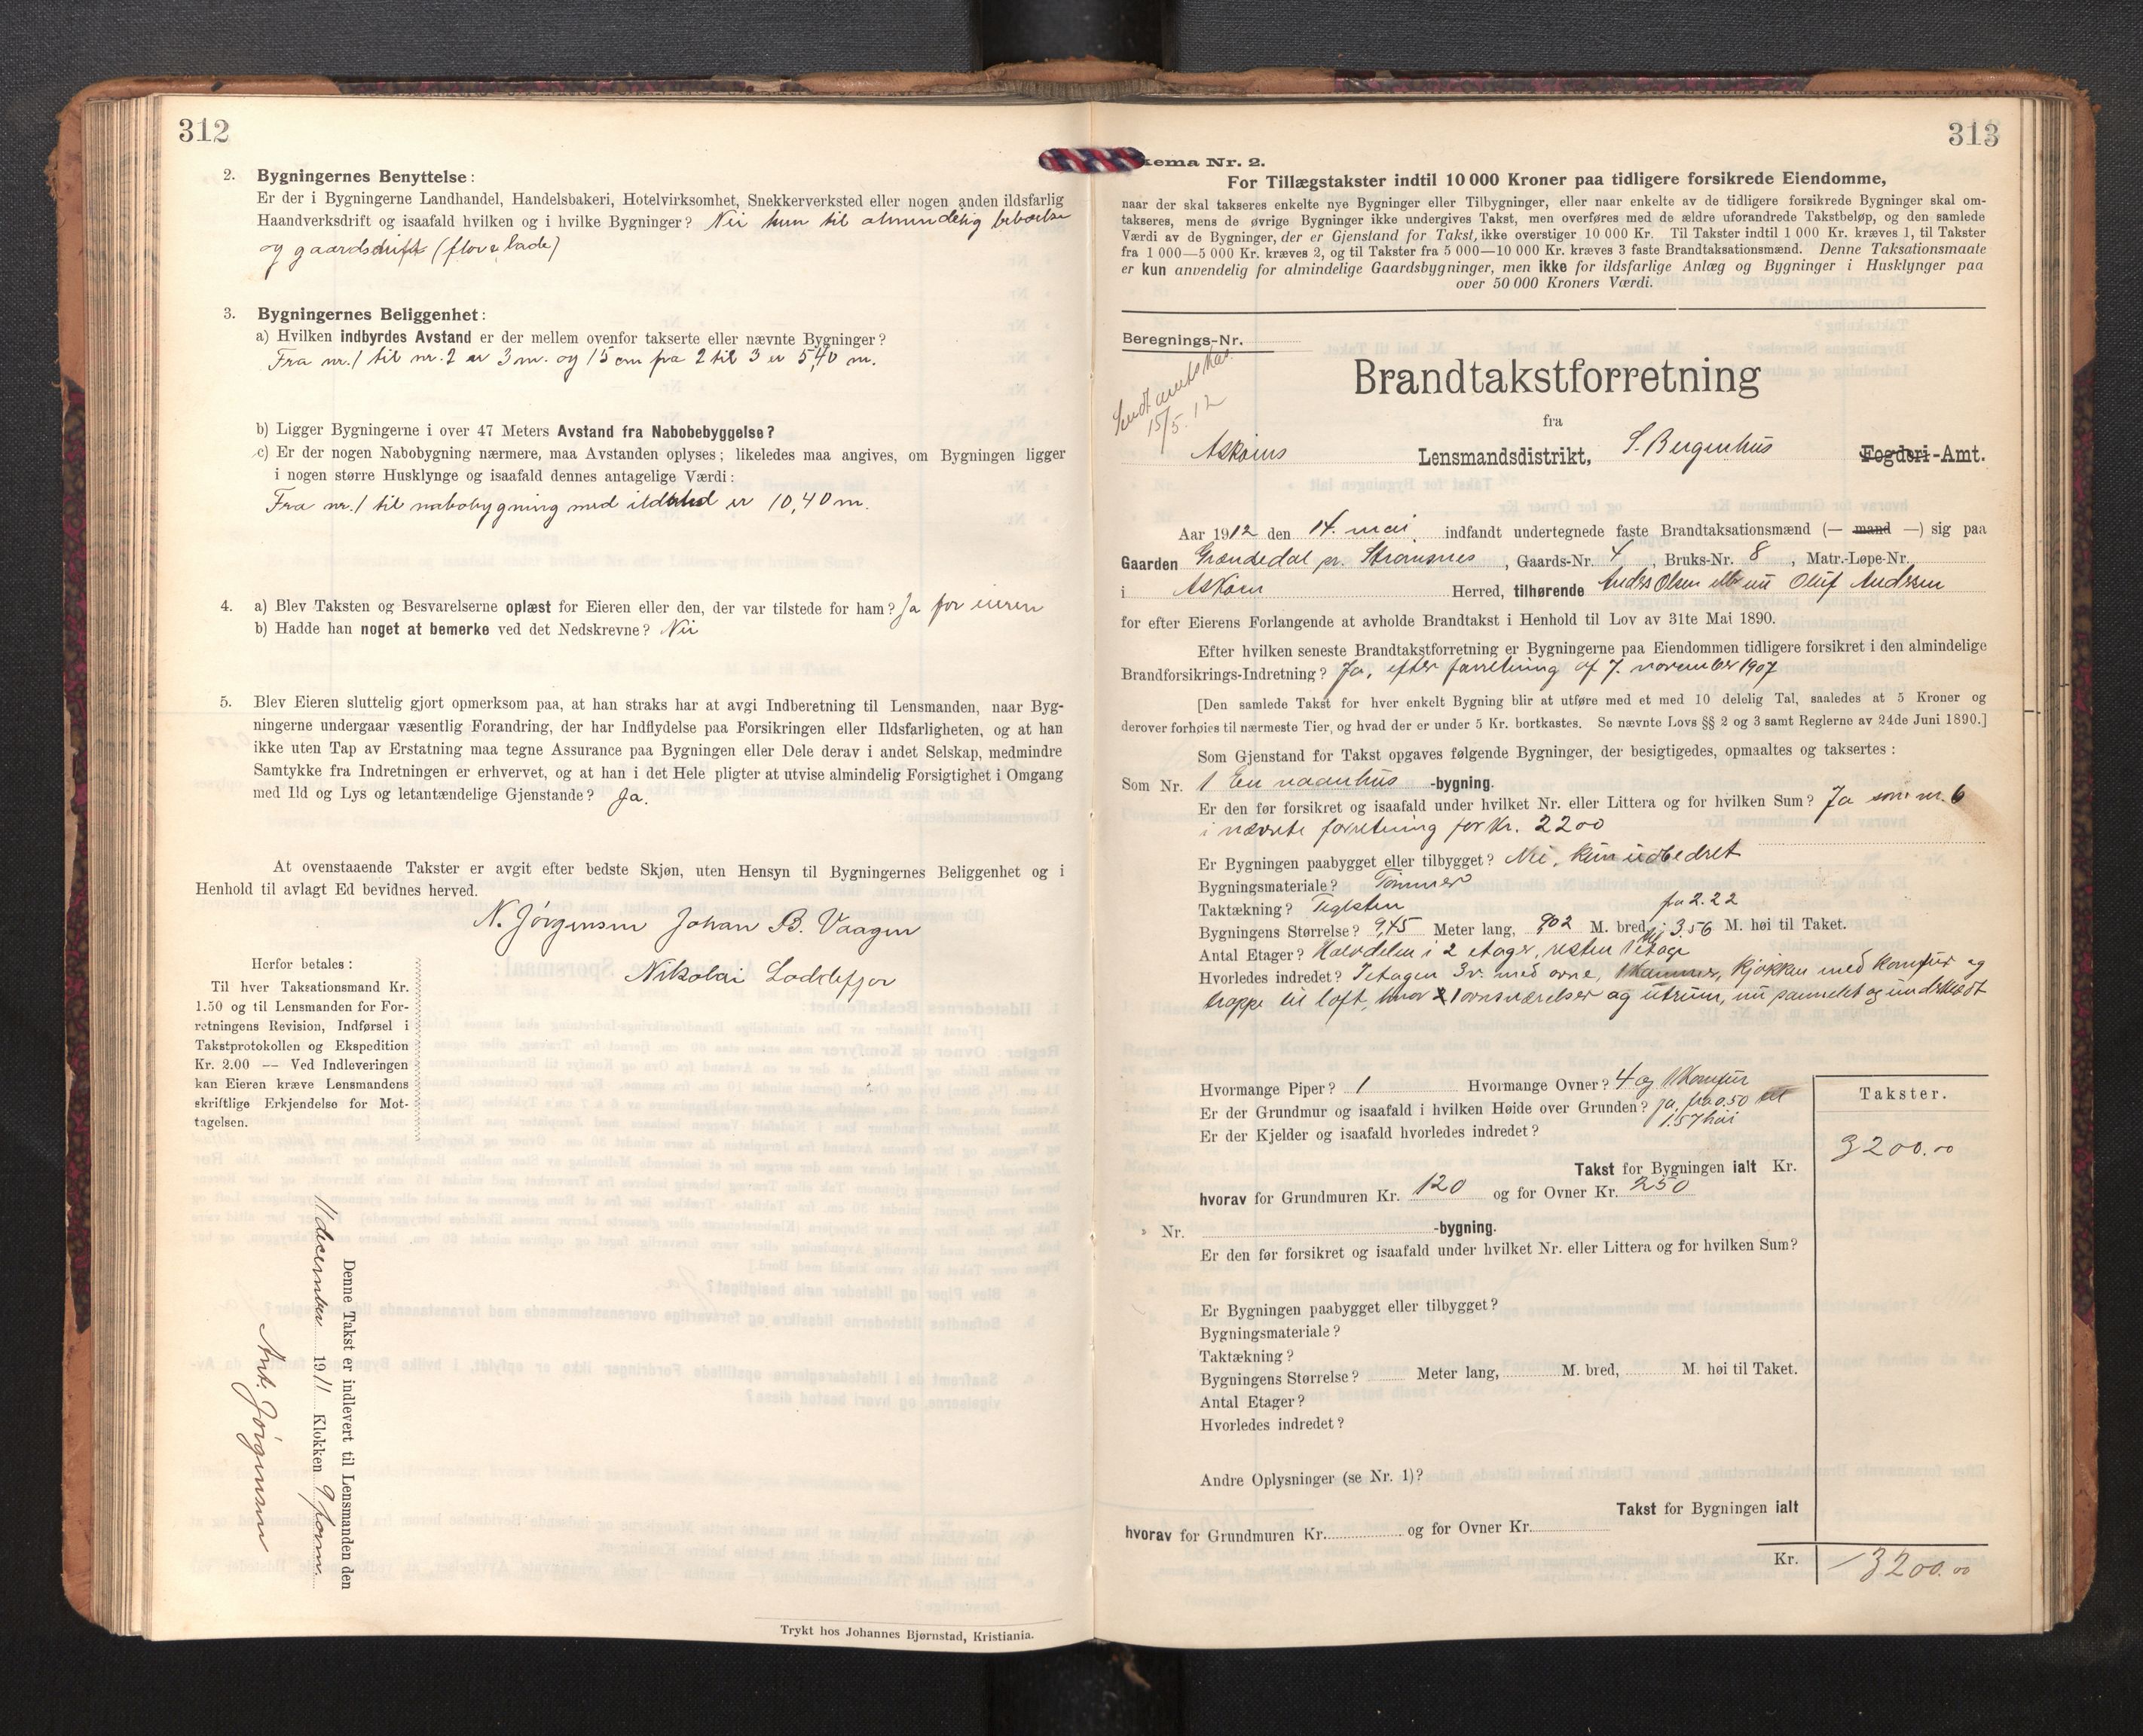 312
2. Bygningernes Benyttelse:
Er der i Bygningerne Landhandel, Handelsbakeri, Hotelvirksomhet, Snekkerverksted eller nogen anden ildsfarlig
Haandverksdrift og isaafald hvilken og i hvilke Bygninger? Nei kun til almindelig beboelse
og gaardsdrift (flor & lade)
3. Bygningernes Beliggenhet:
a) Hvilken indbyrdes Avstand er der mellem ovenfor takserte eller nævnte Bygninger?
Fra nr. 1 til nr. 2 er 3 m. og 15 cm fra 2 til 3 er 5,40 m.
b) Ligger Bygningerne i over 47 Meters Avstand fra Nabobebyggelse?
c) Er der nogen Nabobygning nærmere, maa Avstanden oplyses; likeledes maa angives, om Bygningen ligger
i nogen større Husklynge og isaafald dennes antagelige Værdi:
Fra nr. 1 til nabobygning med ildsted er 10,40 m.
4. a) Blev Taksten og Besvarelserne oplæst for Eieren eller den, der var tilstede for ham? Ja for eieren
b) Hadde han noget at bemerke ved det Nedskrevne? Nei
5. Blev Eieren sluttelig gjort opmerksom paa, at han straks har at avgi Indberetning til Lensmanden, naar Byg-
ningerne undergaar væsentlig Forandring, der har Indflydelse paa Forsikringen eller Ildsfarligheten, og at han
ikke uten Tap av Erstatning maa tegne Assurance paa Bygningen eller Dele derav i andet Selskap, medmindre
Samtykke fra Indretningen er erhvervet, og at han i det Hele pligter at utvise almindelig Forsigtighet i Omgang
med Ild og Lys og letantændelige Gjenstande? Ja.
At ovenstaaende Takster er avgit efter bedste Skjøn, uten Hensyn til Bygningernes Beliggenhet og i
Henhold til avlagt Ed bevidnes herved.
N. Jørgensen Johan B. Vaagen
Nikolai Loddefjor
Herfor betales:
Til hver Taksationsmand Kr.
1.50 og til Lensmanden for For-
retningens Revision, Indførsel i
Takstprotokollen og Ekspedition
Kr. 2.00 — Ved Indleveringen
kan Eieren kræve Lensmandens
skriftlige Erkjendelse for Mot-
tagelsen.
Denne Takst er indlevert til Lensmanden den
11 december 1911 Klokken 9 form.
Jørgensen
Trykt hos Johannes Bjørnstad, Kristiania.
313
kema Nr. 2.
For Tillægstakster indtil 10 000 Kroner paa tidligere forsikrede Eiendomme,
naar der skal takseres enkelte nye Bygninger eller Tilbygninger, eller naar enkelte av de tidligere forsikrede Bygninger skal om-
takseres, mens de øvrige Bygninger ikke undergives Takst, men overføres med de ældre uforandrede Takstbeløp, og den samlede
Værdi av de Bygninger, der er Gjenstand for Takst, ikke overstiger 10 000 Kr. Til Takster indtil 1 000 Kr. kræves 1, til Takster
fra 1 000—5 000 Kr. kræves 2, og til Takster fra 5 000—10 000 Kr. kræves 3 faste Brandtaksationsmænd. Denne Taksationsmaate
er kun anvendelig for almindelige Gaardsbygninger, men ikke for ildsfarlige Anlæg og Bygninger i Husklynger paa
over 50 000 Kroners Værdi.
Beregnings-Nr.
Sendt amtskas.
15/5. 12
Brandtakstforretning
fra
Askøens Lensmandsdistrikt, S. Bergenhus Fogderi-Amt.
Aar 1912 den 14. mai indfandt undertegnede faste Brandtaksationsmænd (— mand —) sig paa
Gaarden Grændedal pr. Strømsnes, Gaards-Nr. 4, Bruks-Nr. 8, Matr.-Løpe-Nr.
i Askøen Herred, tilhørende Anders Olsen nu Oluf Andersen
for efter Eierens Forlangende at avholde Brandtakst i Henhold til Lov av 31te Mai 1890.
Efter hvilken seneste Brandtakstforretning er Bygningerne paa Eiendommen tidligere forsikret i den almindelige
Brandforsikrings-Indretning? Ja, efter forretning af 7. november 1907
[Den samlede Takst for hver enkelt Bygning blir at utføre med et med 10 delelig Tal, saaledes at 5 Kroner og
derover forhøies til nærmeste Tier, og hvad der er under 5 Kr. bortkastes. Se nævnte Lovs §§ 2 og 3 samt Reglerne av 24de Juni 1890.]
Som Gjenstand for Takst opgaves følgende Bygninger, der besigtigedes, opmaaltes og taksertes:
Som Nr. 1 En vaanhus -bygning.
Er den før forsikret og isaafald under hvilket Nr. eller Littera og for hvilken Sum? Ja som nr. 6
i nævnte forretning for kr. 2200
Er Bygningen paabygget eller tilbygget? Nei, kun udbedret
Bygningsmateriale? Tømmer
Taktækning? Teglsten fra 2.22
Bygningens Størrelse? 9,45 Meter lang, 902 M. bred, 3,56 M. høi til Taket.
Antal Etager? Halvdelen i 2 etager, resten 1 etage
Hvorledes indredet? I etagen 3 v. med ovne, 1 kammer, kjøkken med komfur og
trappe til loft, hvor 1 ovnsværelser og utrum, nu pannelet og underklædt
Hvormange Piper? 1 Hvormange Ovner? 4 og 1 Komfur
Er der Grundmur og isaafald i hvilken Høide over Grunden? ja, fra 0.50 til
1.57 høi
Er der Kjelder og isaafald hvorledes indredet?
Takster.
Takst for Bygningen ialt Kr. 3200.00
hvorav for Grundmuren Kr. 120 og for Ovner Kr. 250
» Nr. -bygning.
Er den før forsikret og isaafald under hvilket Nr. eller Littera og for hvilken Sum?
Er Bygningen paabygget eller tilbygget?
Bygningsmateriale?
Taktækning?
Bygningens Størrelse? Meter lang, M. bred, M. høi til Taket.
Antal Etager?
Hvorledes indredet?
Andre Oplysninger (se Nr. 1)?
Takst for Bygningen ialt
hvorav for Grundmuren Kr. og for Ovner Kr.
Kr. 3200.00